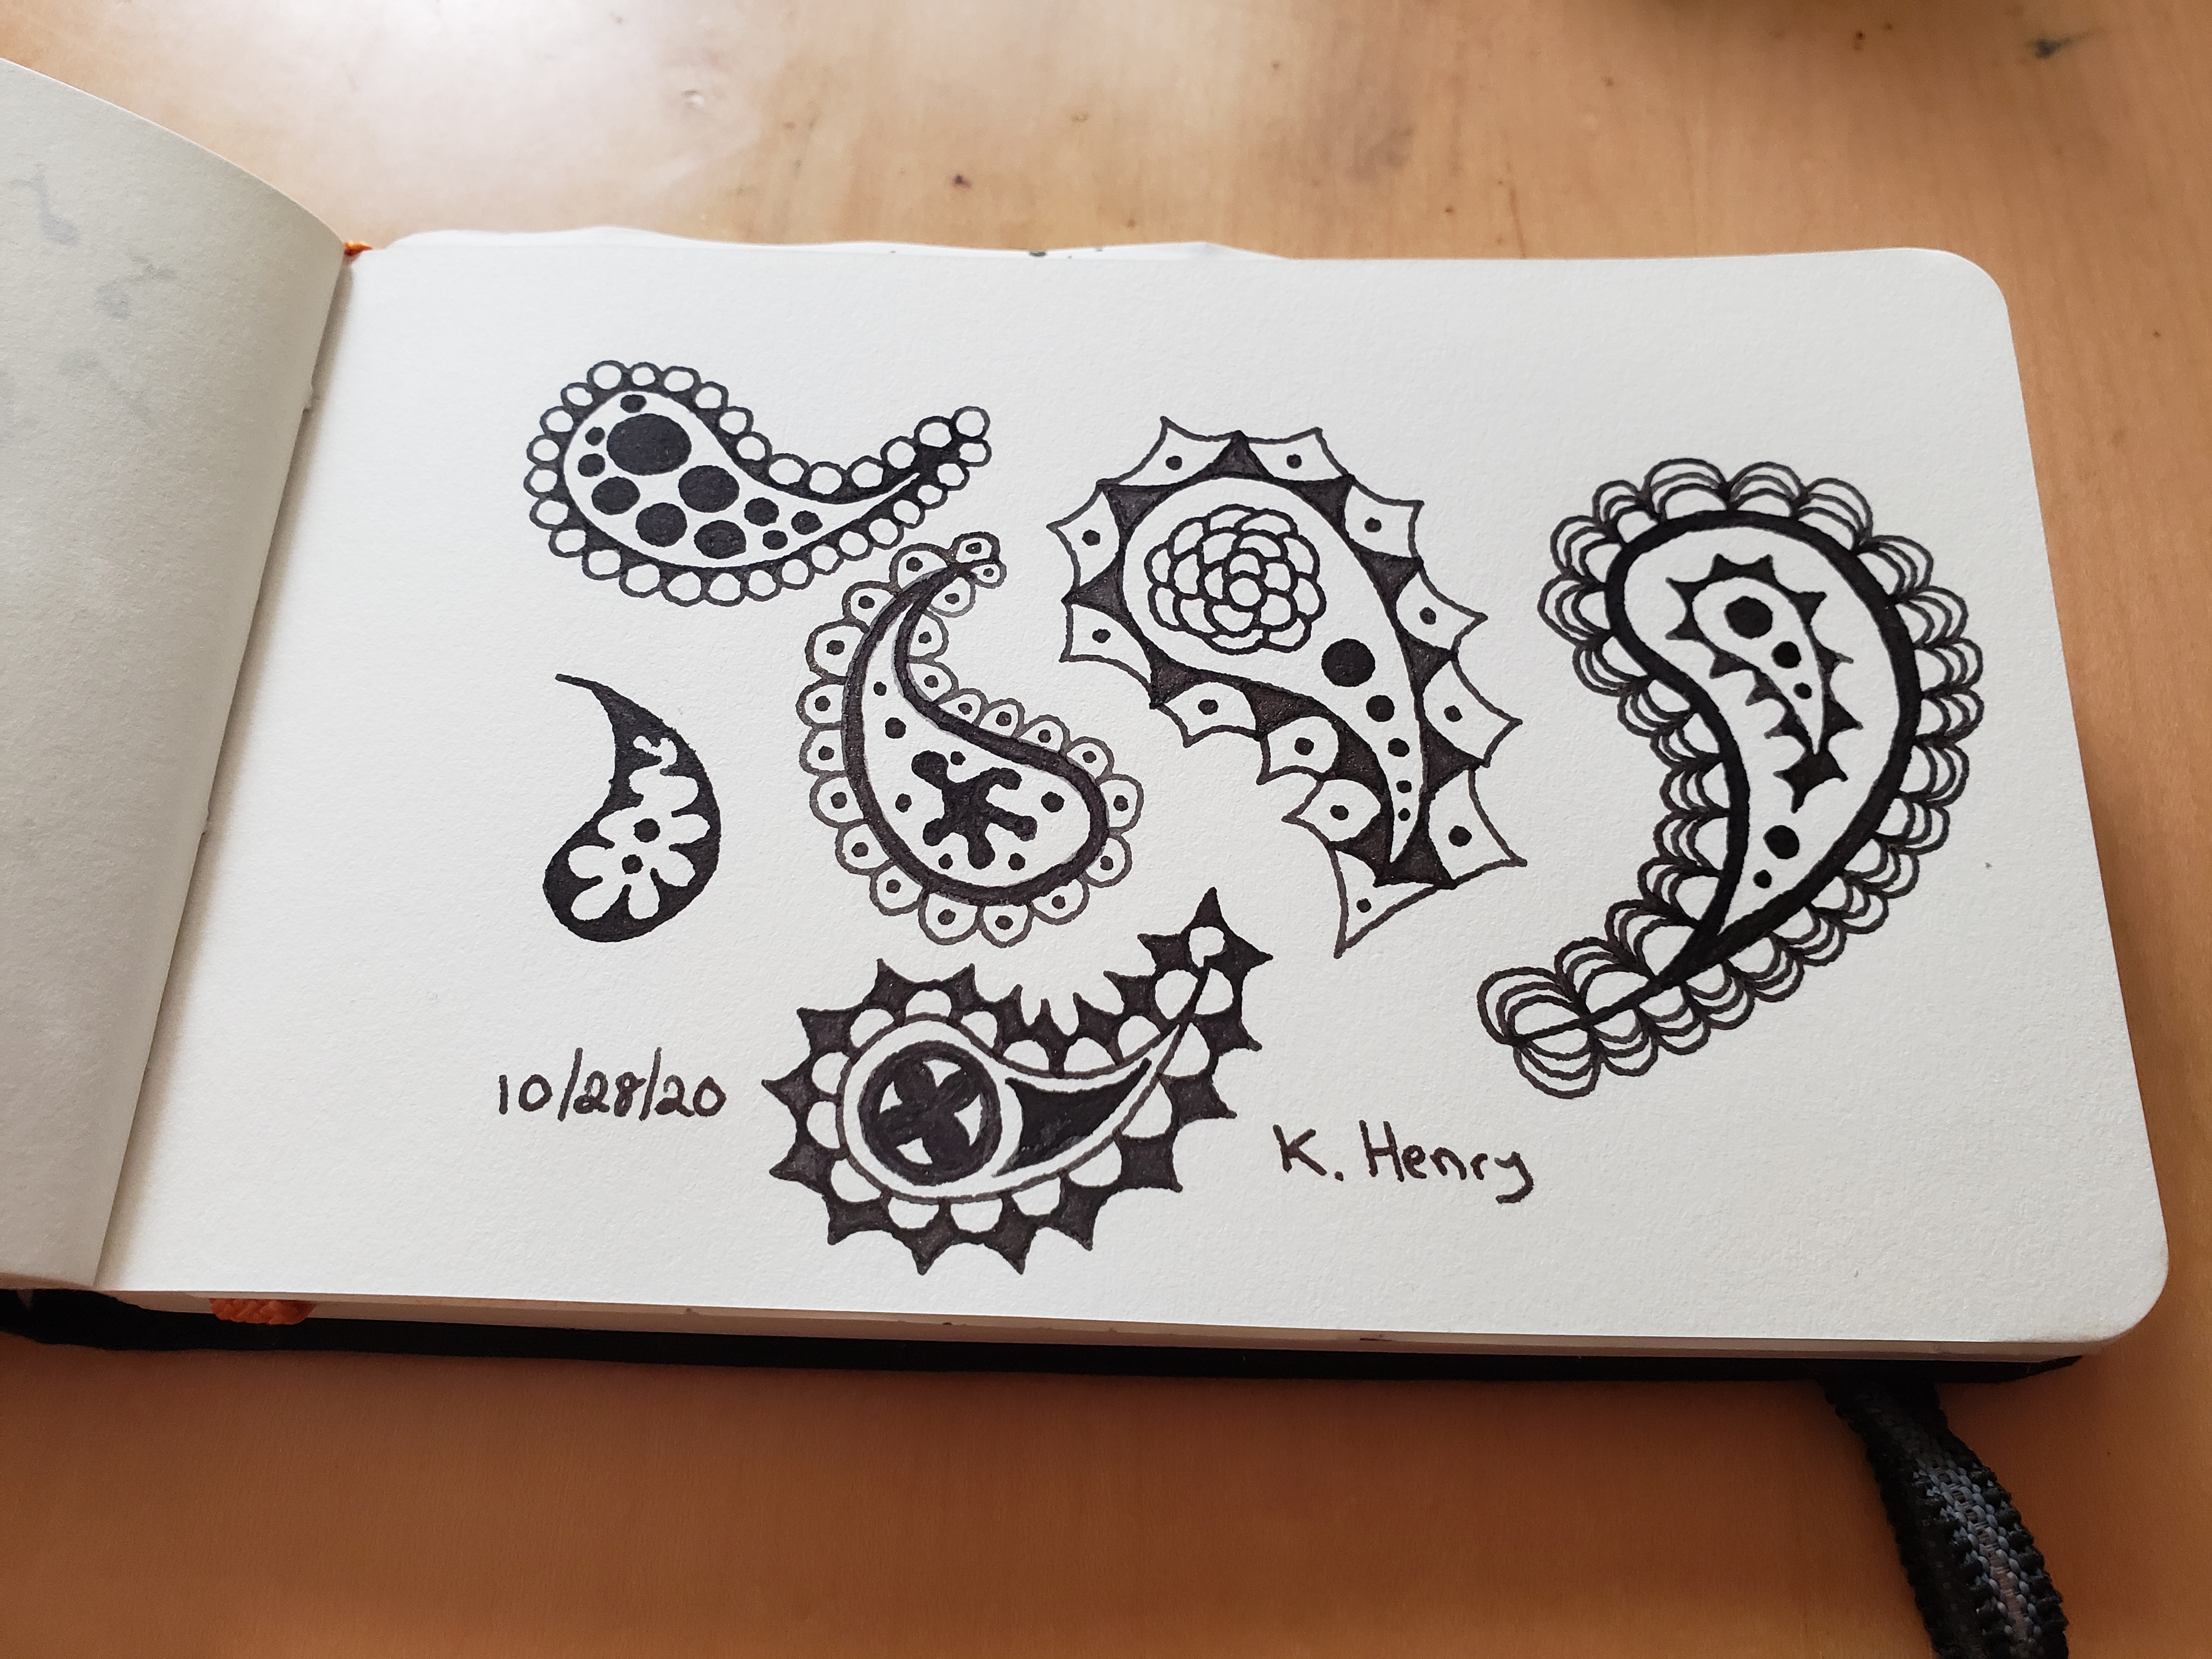 10/28/20
K. Henry